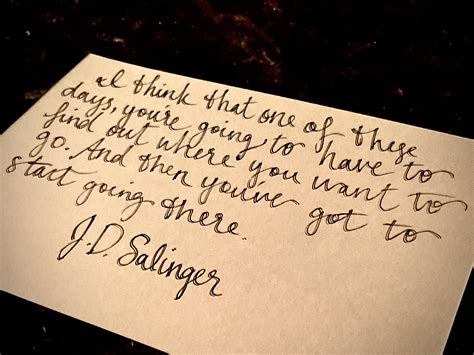 I think that one of these
days, you're going to have to
find out where you want to
go. And then you've got to
start going there.
J.D. Salinger